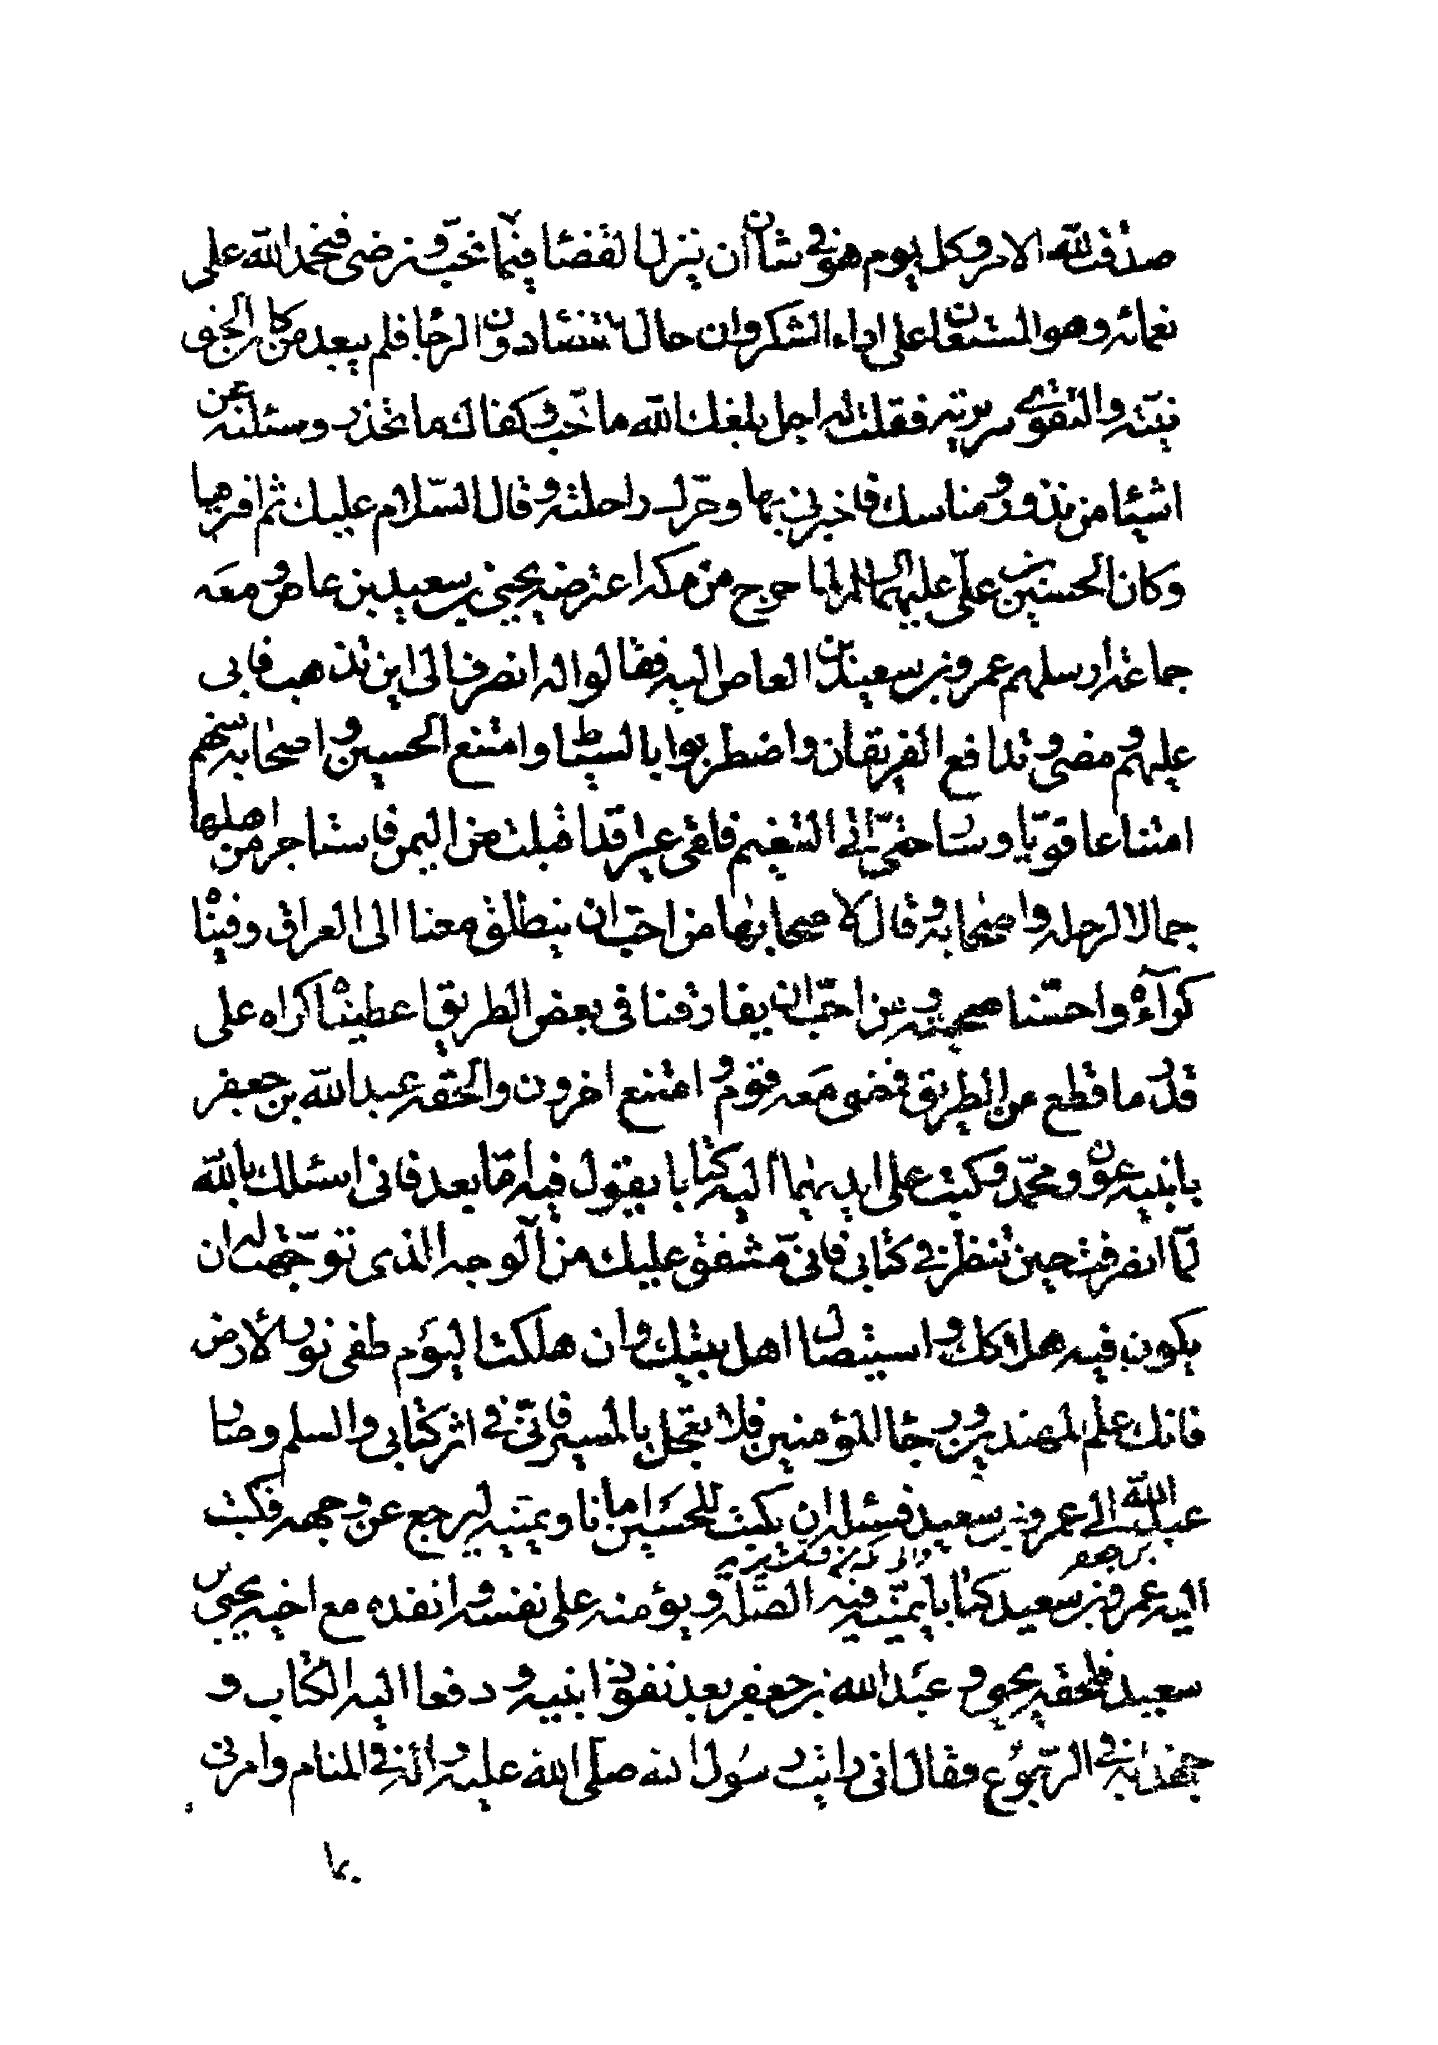 صدقت لله الامر وكل يوم هو فى شان ان ينزل القضا فيما نحب ونرضى فنحمد الله على
نعمائه وهو المستعان على اداء الشكر وان حال القضاء دون الرجا فلم يبعد من كان الحق
نيته والتقوى سريرته فقلت له اجل بلغك الله ما تحب وكفاك ما تحذر وسئلته عن
اشيئا من نذور ومناسك فاخبرنى بها وحرك راحلته وقال السلام عليك ثم افترقنا
وكان الحسين بن على عليهما السلام لما خرج من مكه اعترضه يحيى بن سعيد بن عاص ومعه
جماعة ارسلهم عمرو بن سعيد بن العاص اليه فقالوا له انصرف الى اين تذهب فابى
عليهم ومضى وتدافع الفريقان واضطربوا بالسياط وامتنع الحسين واصحابه منهم
امتناعا قويا وسار حتى اتى التنعيم فلقى عيرا قد اقبلت من اليمن فاستاجر من اهلها
جمالا لرحله واصحابه وقال لاصحابها من احب ان ينطلق معنا الى العراق وفيناه
كراءه واحسنا صحبته ومن احب ان يفارقنا فى بعض الطريق اعطيناه كراه على
قدر ما قطع من الطريق فمضى معه قوم وامتنع اخرون والحقه عبد الله بن جعفر
بابنيه عون ومحمد وكتب على ايديهما اليه كتابا يقول فيه اما بعد فانى اسئلك بالله
لما انصرفت حين تنظر فى كتابى فانى مشفق عليك من الوجه الذى توجهت له ان
يكون فيه هلاكك واستيصال اهل بيتك وان هلكت اليوم طفى نور الارض
فانك علم المهتدين ورجا المؤمنين فلا تعجل بالمسير فانى فى اثر كتابى والسلم وصار
عبد الله بن جعفر الى عمرو بن سعيد فسئله ان يكتب للحسين امانا ويمنيه ليرجع عن وجهه فكتب
اليه عمرو بن سعيد كتابا يمنيه فيه الصلة ويؤمنه على نفسه وانفذه مع اخيه يحيى بن
سعيد فلحقه يحيى وعبد الله بن جعفر بعد نفوذ ابنيه ودفعا اليه الكتاب و
جهدا به فى الرجوع فقال انى رايت رسول الله صلى الله عليه واله فى المنام وامرنى
بما